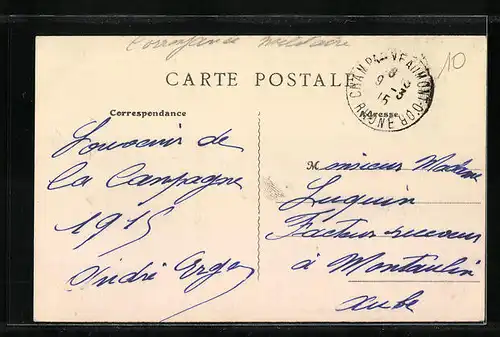 Correspondance Militaire
10
CARTE POSTALE
CHAMPAGNE AU MONT D'OR
RHONE
Correspondance
Adresse
Souvenir de
la Campagne
1915
André
Monsieur Madame
Luquin
Facteur receveur
à Montaulin
Aube